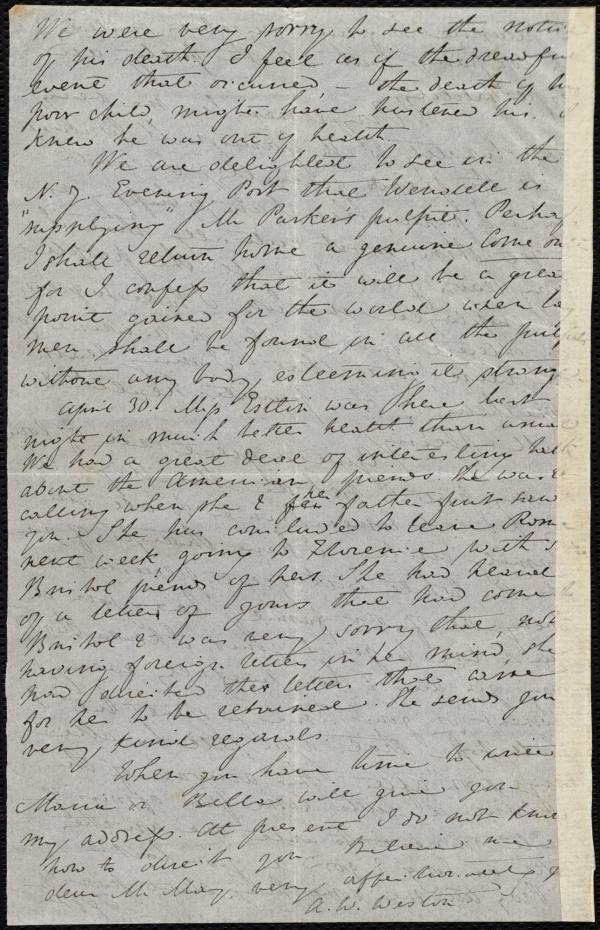 We were very sorry to see the notice
of his death. I feel as if the dreadful
event that occurred, - the death of h
poor child, might have hastened his. I
knew he was out of health.
We are delighted to see in the
N. Y. Evening Post that Wendell is
"supplying" Mr Parker's pulpit. Perhap
I shall return home a genuine Come ou
for I confess that it will be a grea
point gained for the world when lay
men shall be found in all the pulp
without any body esteeming it strang
April 30. Miss Estlin was here last
night in much better health than usual
We had a great deal of interesting talk
about the American friends. She was re
calling when she & her father first saw
you. She has concluded to leave Rome
next week, going to Florence with s
Bristol friends of hers. She had heard
of a letter of yours that had come t
Bristol & was very sorry that, not
having foreign letters in her mind, she
had directed the letters that came
for her to be retained. She sends you
very kind regards.
When you have time to write
Maria or Bella will give you
my address. At present I do not know
how to direct you. Believe me
dear Mr May, very affectionately y
A. W. Weston